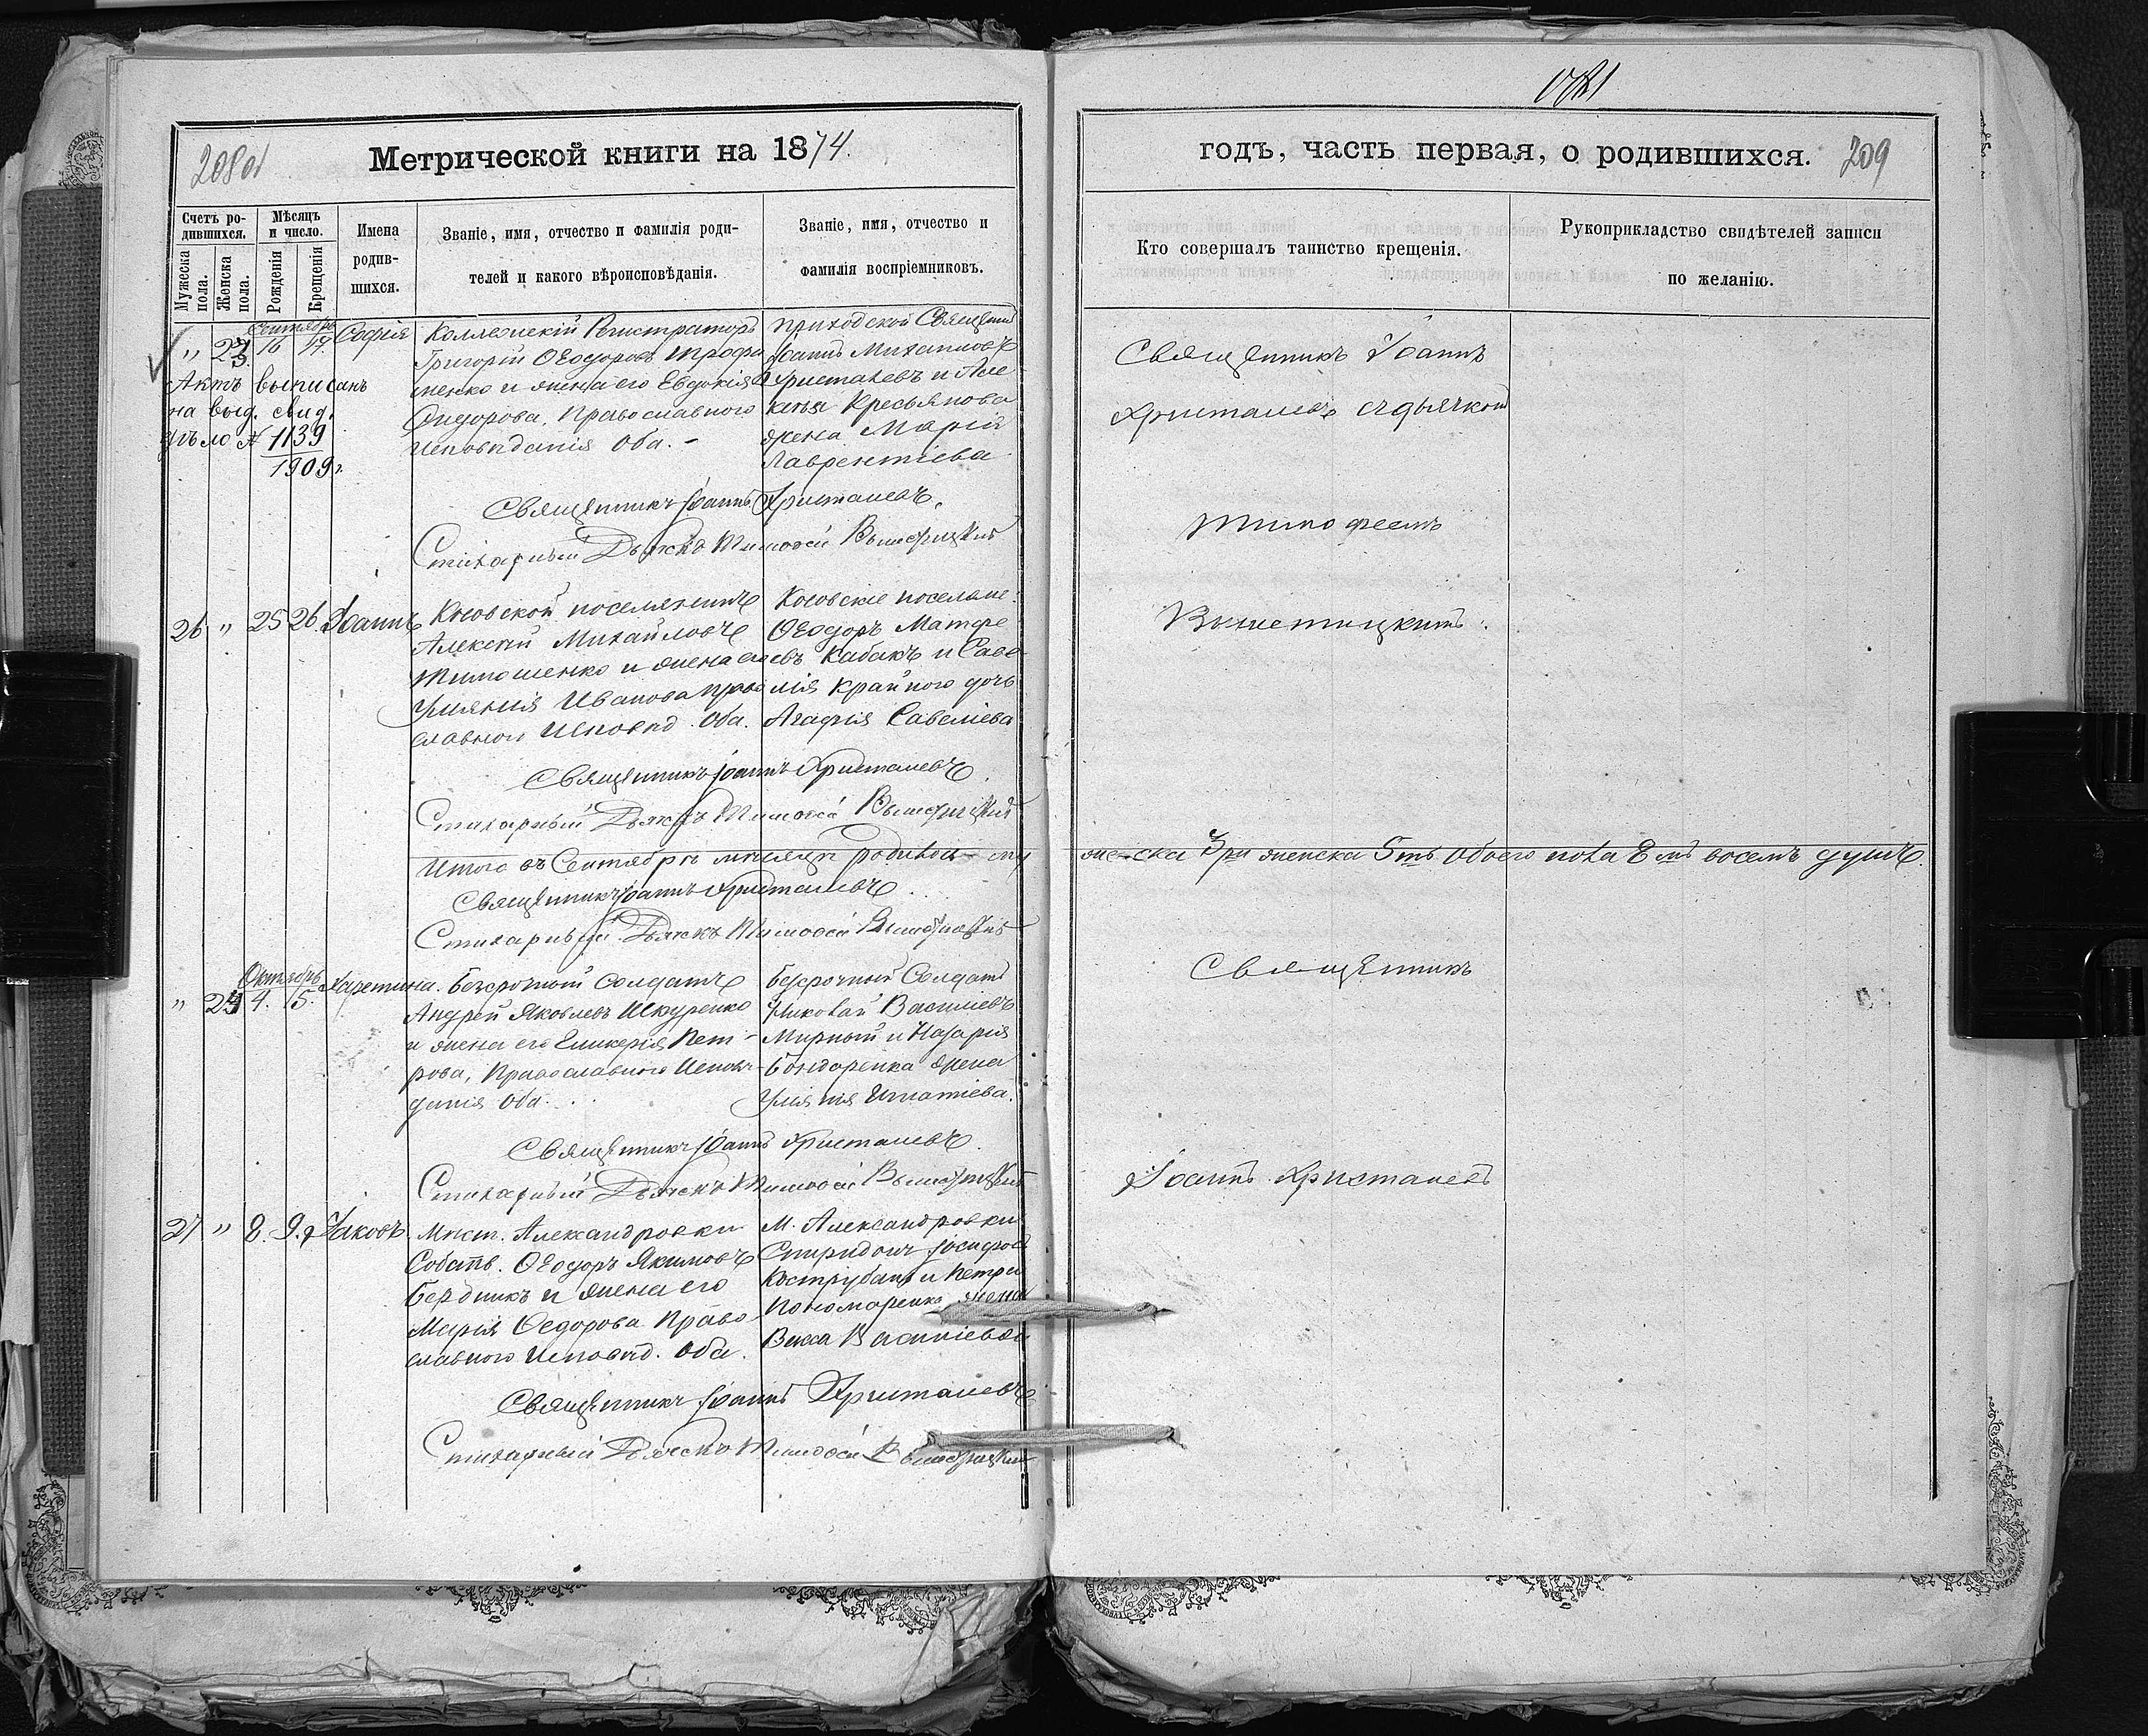 208об
Метрической книги на 1874.
Счетъ ро-
дившихся.
Мѣсяцъ
и число.
Имена
родив-
шихся.
Званіе, имя, отчество и фамилія роди-
телей и какого вѣроисповѣданія.
Званіе, имя, отчество и
фамилія воспріемниковъ.
Мужеска
пола.
Женска
пола.
Рожденія
Крещенія
Сентябрь
" 23. 16 17. Софія
Актъ выписанъ
на выд. свид.
дѣло № 1139
1909г.
Коллежскій Регистраторъ
Григорій Ѳеодоровъ Трофи
менко и жена его Евдокія
Сидорова, Православнаго
Исповѣданія Оба.-
приходской Священникъ
Іоаннъ Михаиловъ
Христалевъ и Але
Кресьянова
жена Марія
Лаврентіева
Священникъ Іоаннъ Христалевъ.
Стихарный Дьячекъ Тимоѳей
26 " 25 26. Іоаннъ
поселянинъ
Алексѣй Михайловъ
Тимошенко и жена его
Уліянія Иванова право
славного Исповѣд. Оба.
поселяне:
Ѳеодоръ Матфе
евъ Кабакъ и Саве
лія Крайного дочь
Агафія Савеліева
Священникъ Іоаннъ Христалевъ.
Стихарный Дьячекъ Тимоѳей
Итого въ Сентябрѣ мѣсяцѣ родилось му
Священникъ Іоаннъ Христалевъ.
Стихарный Дьячекъ Тимоѳей
Октябрь
" 24 4. 5. Харетина.
Безсрочный солдатъ
Андрей Яковлевъ Шкуренко
и жена его Гликерія Пет-
рова, Православного Исповѣ-
данія Оба.
безсрочный Солдатъ
Николай Василіевъ
Мирный и Назарія
Бондаренка жена
Уліянія Игнатіева.
Священникъ Іоаннъ Христалевъ.
Стихарный Дьячекъ Тимоѳей
27 " 8. 9. Іаковъ.
Мѣст. Александровки
Собств. Ѳеодоръ Якимовъ
Бердникъ и жена его
Марія Федорова Право
славного Исповѣд. Оба.
М. Александровки
Спиридонъ Іосифовъ
Кострубанъ и Петра
Пономаренка жена
Васса Василіевна
Священникъ Іоаннъ Христалевъ
Стихарный Дьячекъ Тимоѳей
годъ, часть первая, о родившихся. 209
Кто совершалъ таинство крещенія.
Рукоприкладство свидѣтелей записи
по желанію.
Священникъ Іоаннъ
Христалевъ съ дьячкомъ
Тимофеемъ
жеска три женска 5ть обоего пола 8мь восемь душъ.
Священникъ
Іоаннъ Христалевъ